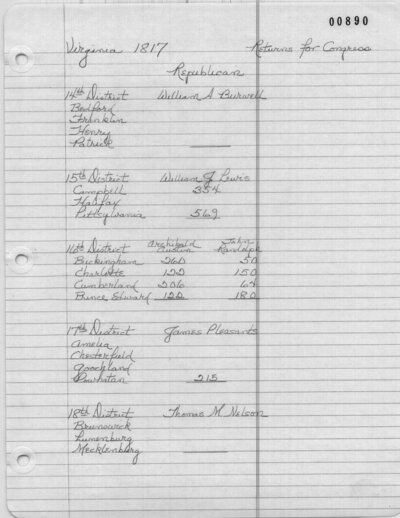 00890
Virginia 1817 Returns for Congress
Republican
14th District William A Burwell
Bedford
Franklin
Henry
Patrick
15th District William J Lewis
Campbell 354
Halifax
Pittsylvania 569
16th District Archibald Austin John Randolph
Buckingham 260 50
Charlotte 122 150
Cumberland 206 64
Prince Edward 122 180
17th District James Pleasants
Amelia
Chesterfield
Goochland
Powhatan 215
18th District Thomas M Nelson
Brunswick
Lunenburg
Mecklenburg